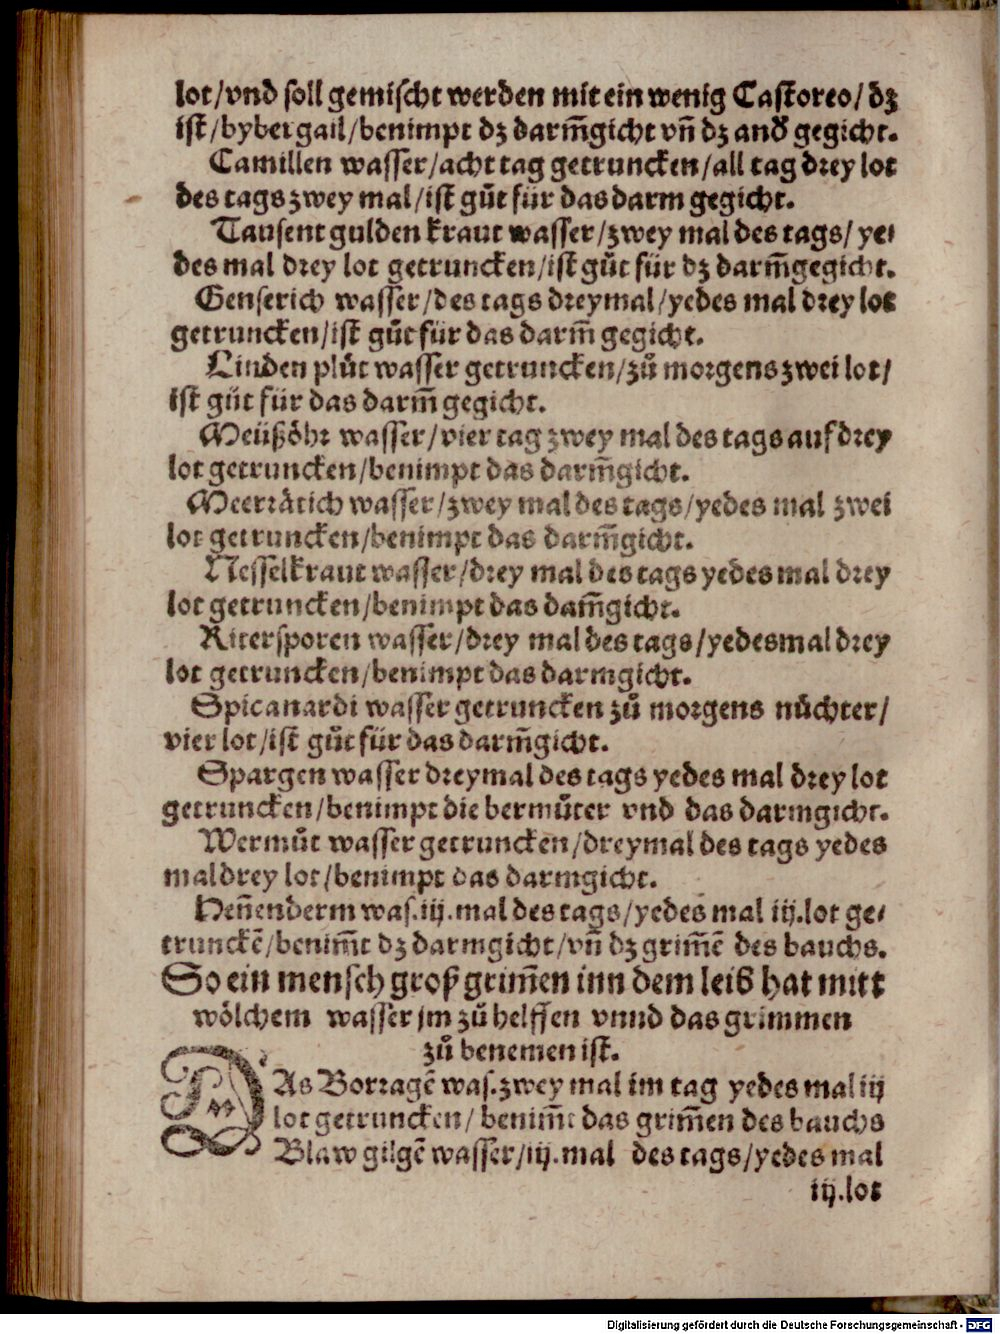 lot/vnd soll gemischt werden mit ein wenig Castoreo/ dz
ist/bybergail/benimpt dz darm̃gicht vñ dz and̕ gegicht.
Camillen wasser/acht tag getruncken/all tag drey lot
des tags zwey mal/ist gůt für das darm gegicht.
Tausent gulden kraut wasser/zwey mal des tags/ ye⸗
des mal drey lot getruncken/ist gůt für dz darm̃gegicht.
Genserich wasser/des tags dreymal/yedes mal drey lot
getruncken/ist gůt für das darm̃ gegicht.
Linden plůt wasser getruncken/zů morgens zwei lot/
ist gůt für das darm̃ gegicht.
Meüßöhr wasser/vier tag zwey mal des tags auf drey
lot getruncken/benimpt das darm̃gicht.
Meerrätich wasser/zwey mal des tags/yedes mal zwei
lot getruncken/benimpt das darm̃gicht.
Nesselkraut wasser/drey mal des tags yedes mal drey
lot getruncken/benimpt das dam̃gicht.
Ritersporen wasser/drey mal des tags/yedesmal drey
lot getruncken/benimpt das darmgicht.
Spicanardi wasser getruncken zů morgens nůchter/
vier lot/ist gůt für das darm̃gicht.
Spargen wasser dreymal des tags yedes mal drey lot
getruncken/benimpt die bermůter vnd das darmgicht.
Wermůt wasser getruncken/dreymal des tags yedes
mal drey lot/benimpt das darmgicht.
Heñenderm was.iij.mal des tags/yedes mal iij.lot ge⸗
trunckē/benim̃t dz darmgicht/vñ dz grim̃ē des bauchs.
So ein mensch groß grim̃en inn dem leib hat mitt
wölchem wasser jm zů helffen vnnd das grimmen
zů benemen ist.
DAs Borragē was.zwey mal im tag yedes mal iij
lot getruncken/ benim̃t das grim̃en des bauchs
Blaw gilgē wasser/iij.mal des tags/yedes mal
iij.lot
Digitalisierung gefördert durch die Deutsche Forschungsgemeinschaft - DFG